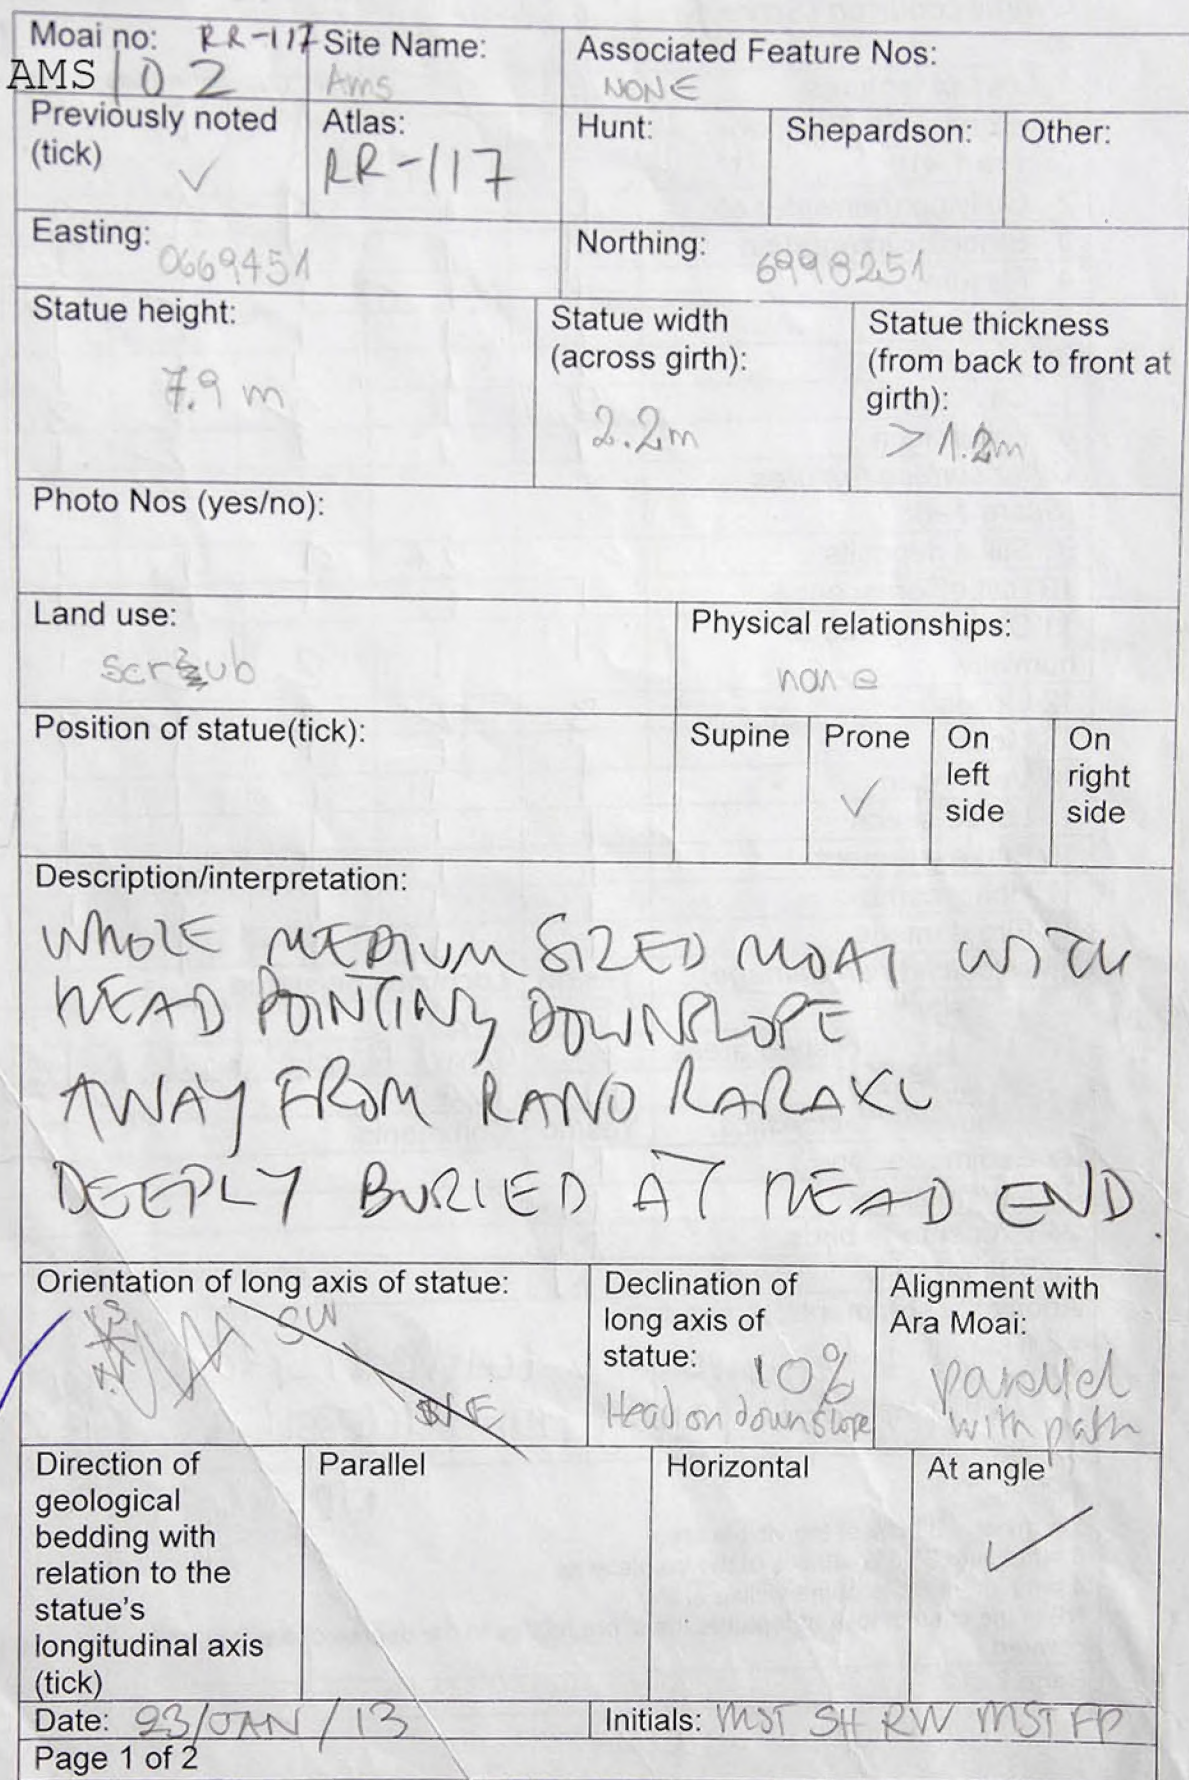 Moai no: RR-117
AMS 102
Site Name:
Ams
Associated Feature Nos:
NONE
Previously noted
(tick) ✓
Atlas:
RR-117
Hunt:
Shepardson:
Other:
Easting: 0669451
Northing: 6998251
Statue height:
7.9 m
Statue width
(across girth):
2.2m
Statue thickness
(from back to front at
girth):
> 1.2m
Photo Nos (yes/no):
Land use:
scrub
Physical relationships:
none
Position of statue(tick):
Supine
Prone
✓
On
left
side
On
right
side
Description/interpretation:
WHOLE MEDIUM SIZED MOAI WITH
HEAD POINTING DOWNSLOPE
AWAY FROM RANO RARAKU
DEEPLY BURIED AT HEAD END.
Orientation of long axis of statue:
SW
NE
Declination of
long axis of
statue: 10%
Head on downslope
Alignment with
Ara Moai:
parallel
with path
Direction of
geological
bedding with
relation to the
statue's
longitudinal axis
(tick)
Parallel
Horizontal
At angle
✓
Date: 23/JAN/13
Initials: MST SH RW MST FP
Page 1 of 2